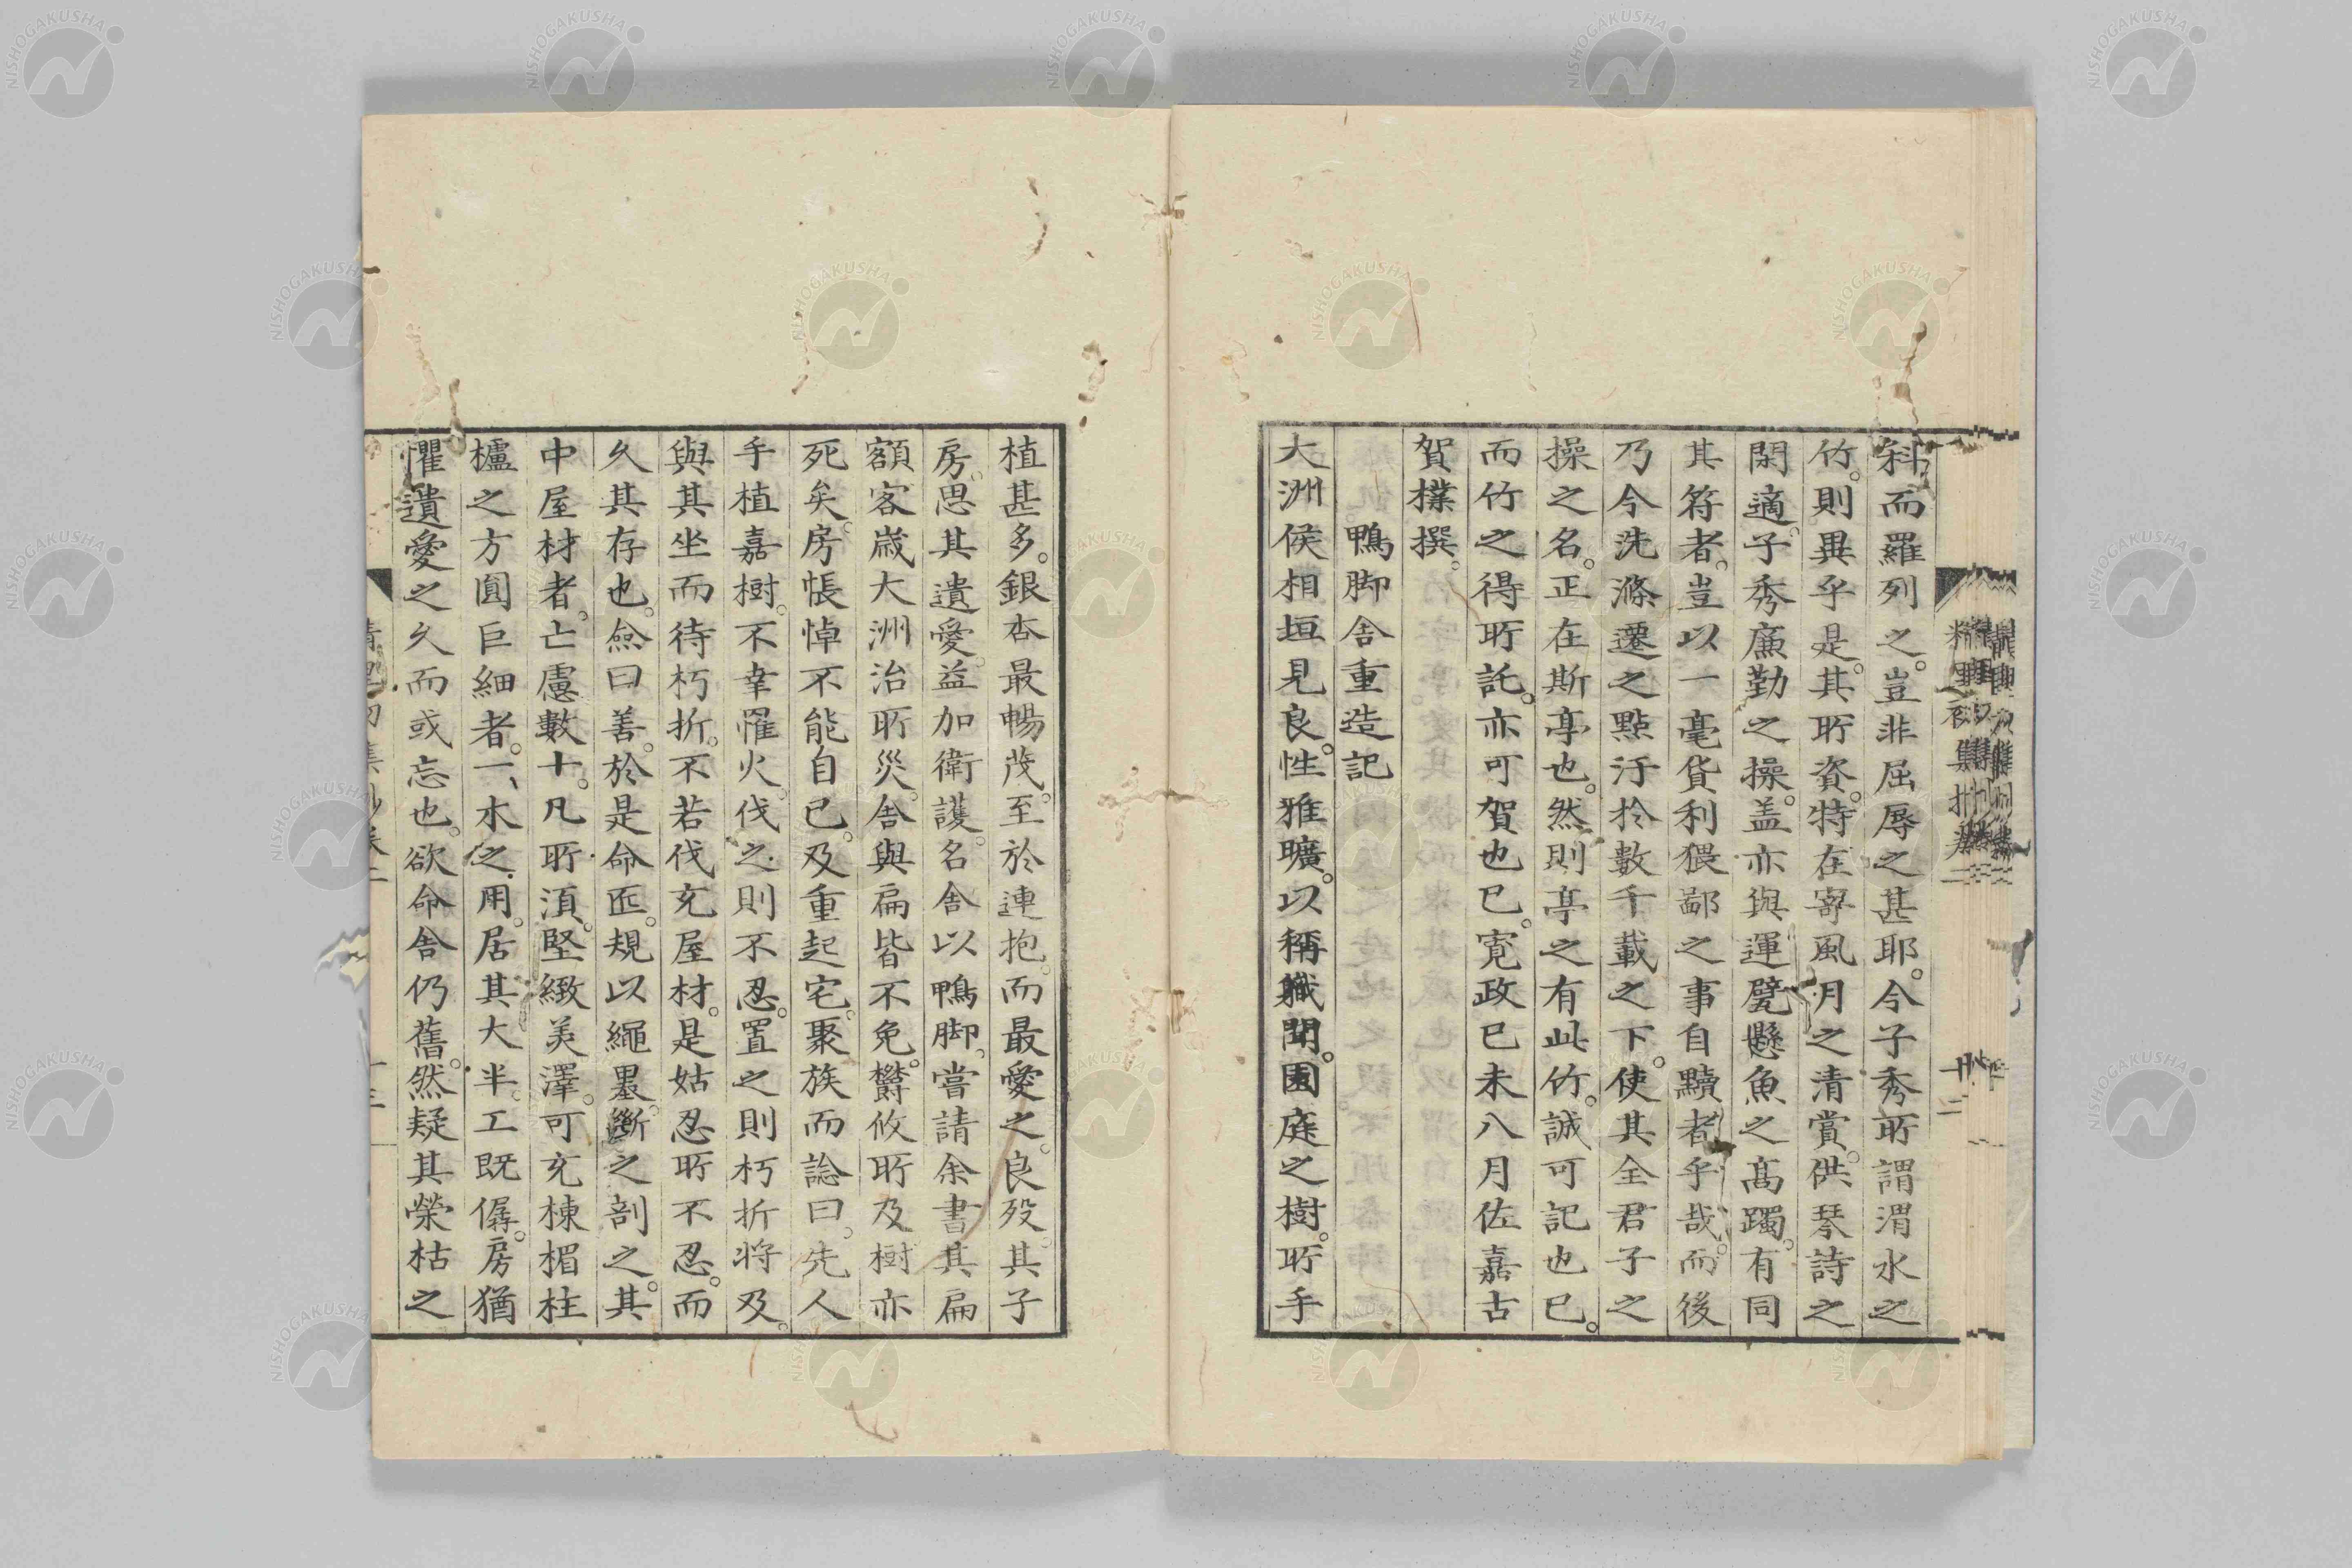 斜而羅列之。豈非屈辱之甚耶。今子秀所謂渭水之
竹。則異乎是。其所資。特在寄風月之清賞。供琴詩之
閑適。子秀廉勤之操。蓋亦與運甓懸魚之高躅。有同
其符者。豈以一毫貨利猥鄙之事自黷者乎哉。而後
乃今洗滌遷之點汙於數千載之下。使其全君子之
操之名。正在斯亭也。然則亭之有此竹。誠可記也已。
而竹之得所託。亦可賀也已。寬政已未八月佐嘉古
賀樸撰。
鴨脚舍重造記
大洲侯相垣見良。性雅曠。以稱職聞。園庭之樹。所手
植甚多。銀杏最暢茂。至於連抱。而最愛之。良歿。其子
房。思其遺愛。益加衛護。名舍以鴨脚。嘗請余書其扁
額。客歲大洲治所災。舍與扁皆不免。欝攸所及樹亦
死矣。房悵悼不能自已。及重起宅。聚族而諗曰。先人
手植嘉樹。不幸罹火。伐之則不忍。置之則朽折將及。
與其坐而待朽折。不若伐充屋材。是姑忍所不忍。而
久其存也。僉曰善。於是命匠。規以繩墨。斷之剖之。其
中屋材者。亡慮數十。凡所湏。堅緻美澤。可充棟楣柱
櫨之方圓巨細者。一木之用。居其大半。工既僝。房猶
懼遺愛之久而或忘也。欲命舍仍舊。然疑其榮枯之